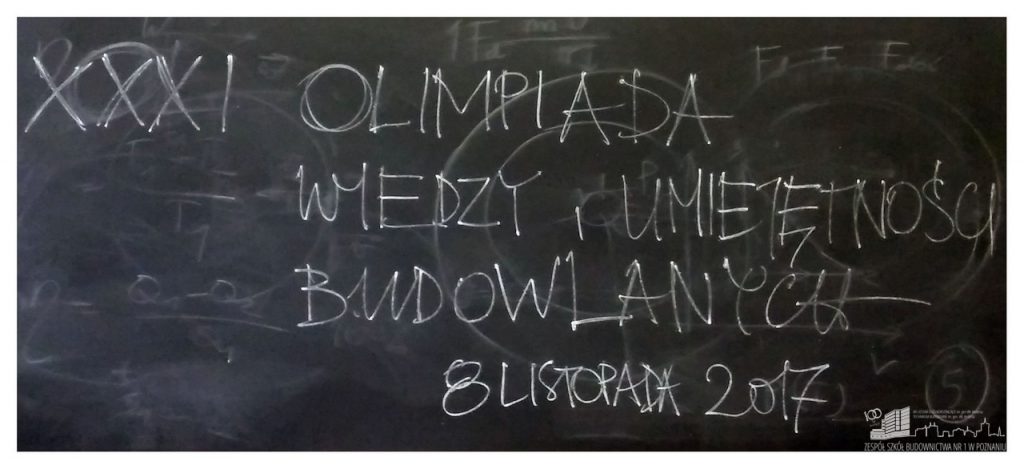 XXXI OLIMPIADA
WIEDZY I UMIEJĘTNOŚCI
BUDOWLANYCH
8 LISTOPADA 2017
5
100
ZESPÓŁ SZKÓŁ BUDOWNICTWA NR 1 W POZNANIU